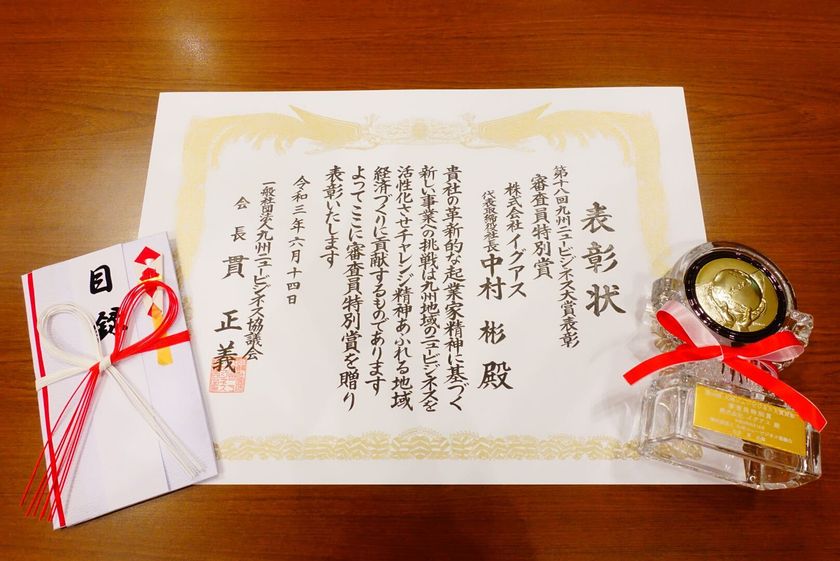 表彰状
第十八回九州ニュービジネス大賞表彰
審査員特別賞
株式会社イグアス
代表取締役社長 中村 彬 殿
貴社の革新的な起業家精神に基づく
新しい事業への挑戦は九州地域のニュービジネスを
活性化させチャレンジ精神あふれる地域
経済づくりに貢献するものであります
よってここに審査員特別賞を贈り
表彰いたします
令和三年六月十四日
一般社団法人九州ニュービジネス協議会
会長 貫 正義
目録
審査員特別賞
株式会社イグアス 殿